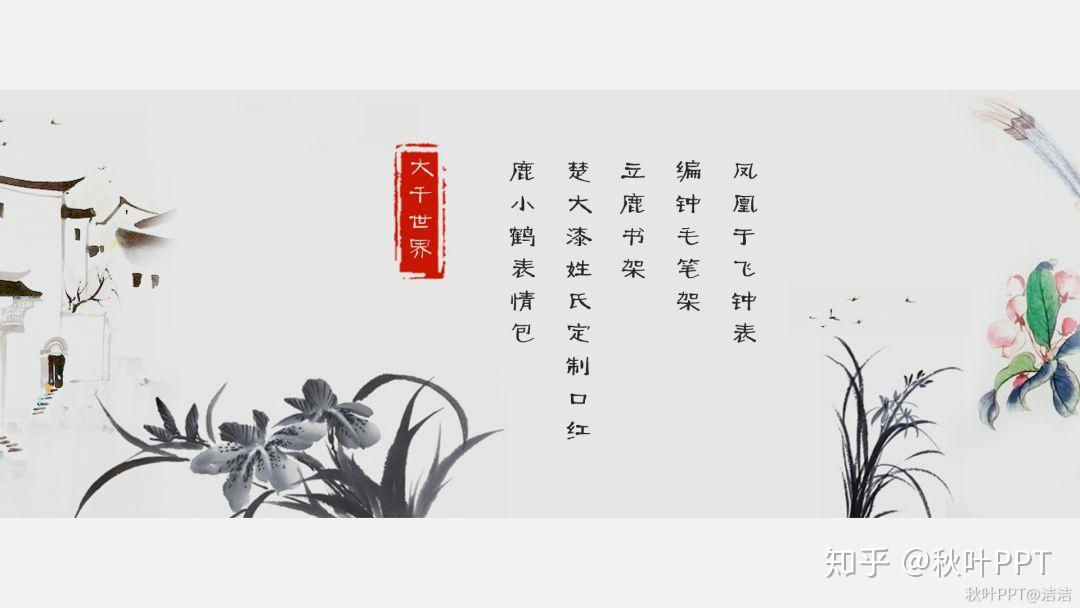 凤凰于飞钟表
编钟毛笔架
立鹿书架
楚大漆姓氏定制口红
鹿小鹤表情包
大千世界
知乎 @秋叶PPT
秋叶PPT@洁洁